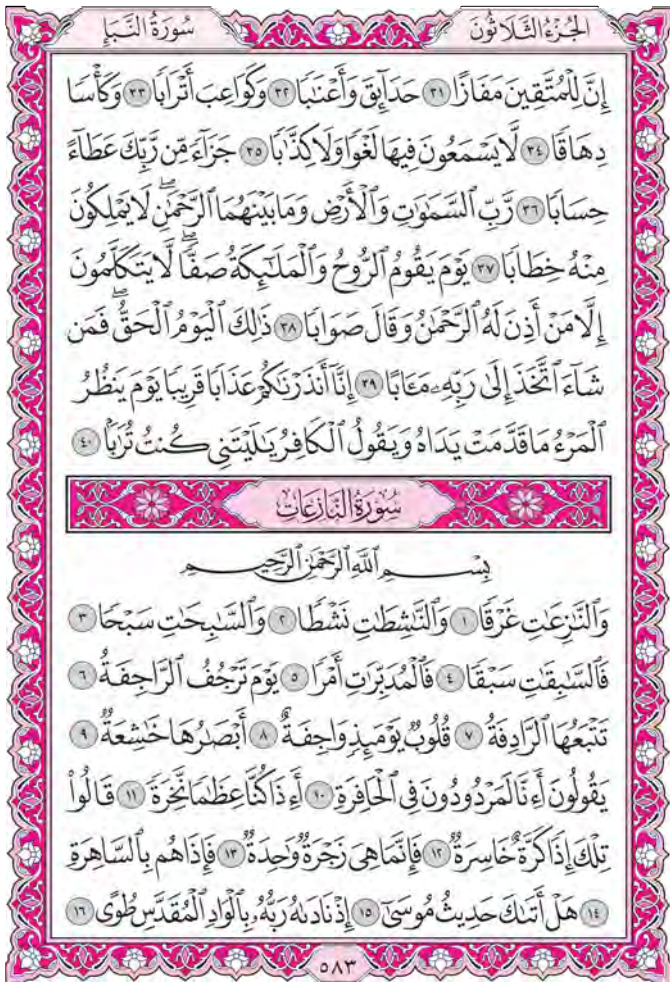 الجُزْءُ الثَّلَاثُونَ سُورَةُ النَّبَإِ
إِنَّ لِلْمُتَّقِينَ مَفَازًا ٣١ حَدَآئِقَ وَأَعْنَٰبًا ٣٢ وَكَوَاعِبَ أَتْرَابًا ٣٣ وَكَأْسًا
دِهَاقًا ٣٤ لَّا يَسْمَعُونَ فِيهَا لَغْوًا وَلَا كِذَّٰبًا ٣٥ جَزَآءً مِّن رَّبِّكَ عَطَآءً
حِسَابًا ٣٦ رَّبِّ ٱلسَّمَٰوَٰتِ وَٱلْأَرْضِ وَمَا بَيْنَهُمَا ٱلرَّحْمَٰنِۖ لَا يَمْلِكُونَ
مِنْهُ خِطَابًا ٣٧ يَوْمَ يَقُومُ ٱلرُّوحُ وَٱلْمَلَٰٓئِكَةُ صَفًّاۖ لَّا يَتَكَلَّمُونَ
إِلَّا مَنْ أَذِنَ لَهُ ٱلرَّحْمَٰنُ وَقَالَ صَوَابًا ٣٨ ذَٰلِكَ ٱلْيَوْمُ ٱلْحَقُّۖ فَمَن
شَآءَ ٱتَّخَذَ إِلَىٰ رَبِّهِۦ مَـَٔابًا ٣٩ إِنَّآ أَنذَرْنَٰكُمْ عَذَابًا قَرِيبًا يَوْمَ يَنظُرُ
ٱلْمَرْءُ مَا قَدَّمَتْ يَدَاهُ وَيَقُولُ ٱلْكَافِرُ يَٰلَيْتَنِى كُنتُ تُرَٰبًۢا ٤٠
سُورَةُ النَّازِعَاتِ
بِسْمِ ٱللَّهِ ٱلرَّحْمَٰنِ ٱلرَّحِيمِ
وَٱلنَّٰزِعَٰتِ غَرْقًا ١ وَٱلنَّٰشِطَٰتِ نَشْطًا ٢ وَٱلسَّٰبِحَٰتِ سَبْحًا ٣
فَٱلسَّٰبِقَٰتِ سَبْقًا ٤ فَٱلْمُدَبِّرَٰتِ أَمْرًا ٥ يَوْمَ تَرْجُفُ ٱلرَّاجِفَةُ ٦
تَتْبَعُهَا ٱلرَّادِفَةُ ٧ قُلُوبٌ يَوْمَئِذٍ وَاجِفَةٌ ٨ أَبْصَٰرُهَا خَٰشِعَةٌ ٩
يَقُولُونَ أَءِنَّا لَمَرْدُودُونَ فِى ٱلْحَافِرَةِ ١٠ أَءِذَا كُنَّا عِظَٰمًا نَّخِرَةً ١١ قَالُوا۟
تِلْكَ إِذًا كَرَّةٌ خَاسِرَةٌ ١٢ فَإِنَّمَا هِىَ زَجْرَةٌ وَٰحِدَةٌ ١٣ فَإِذَا هُم بِٱلسَّاهِرَةِ
١٤ هَلْ أَتَىٰكَ حَدِيثُ مُوسَىٰٓ ١٥ إِذْ نَادَىٰهُ رَبُّهُۥ بِٱلْوَادِ ٱلْمُقَدَّسِ طُوًى ١٦
٥٨٣